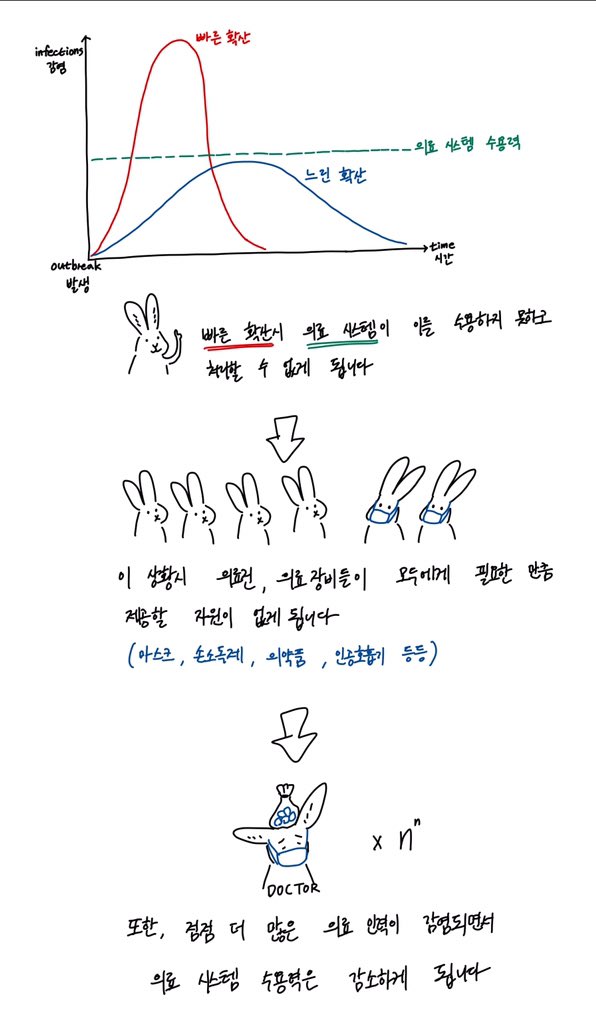 infections
감염
빠른 확산
의료 시스템 수용력
느린 확산
time
시간
outbreak
발생
빠른 확산시 의료 시스템이 이를 수용하지 못하고
처리할 수 없게 됩니다
이 상황시 의료진, 의료장비들이 모두에게 필요한 만큼
제공할 자원이 없게 됩니다
(마스크, 손소독제, 의약품, 인공호흡기 등등)
DOCTOR
x nⁿ
또한, 점점 더 많은 의료 인력이 감염되면서
의료 시스템 수용력은 감소하게 됩니다